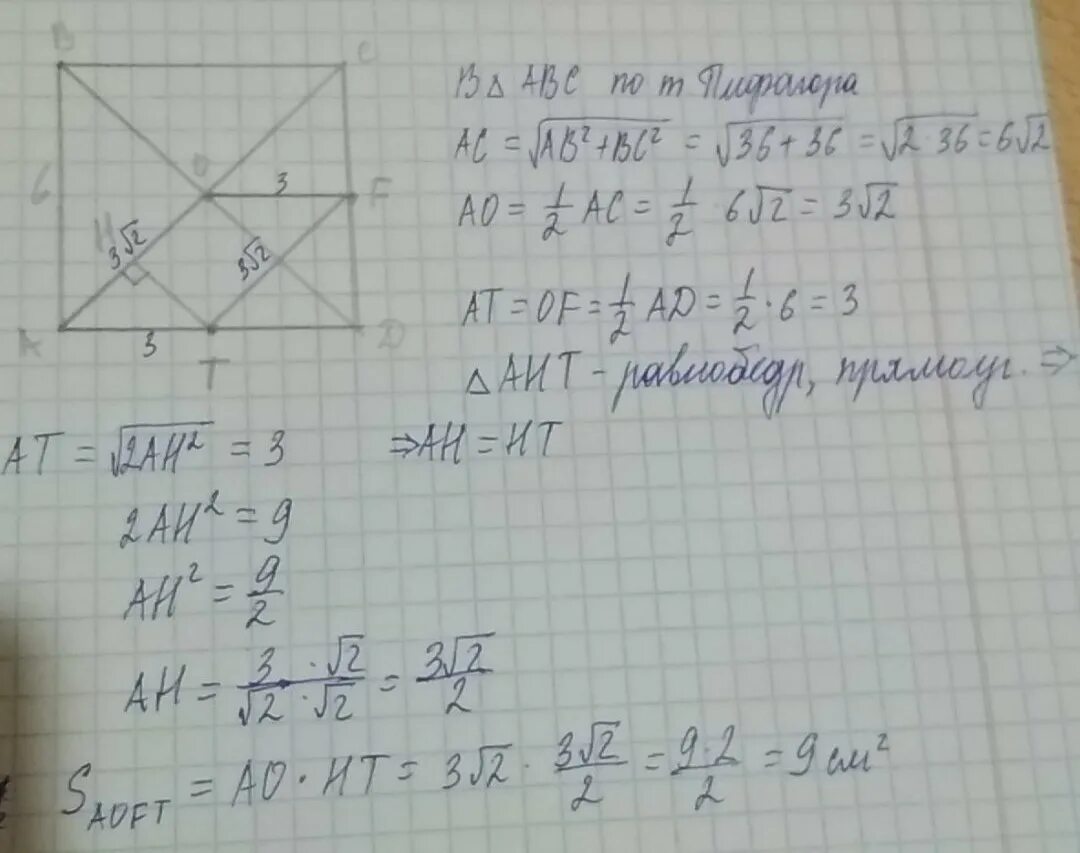 B
C
6
O
3
F
H
3√2
3√2
A
3
T
D
В △ ABC по т Пифагора
AC = √(AB² + BC²) = √(36 + 36) = √(2 · 36) = 6√2
AO = 1/2 AC = 1/2 · 6√2 = 3√2
AT = OF = 1/2 AD = 1/2 · 6 = 3
△ AHT - равнобедр, прямоуг. ⇒
AT = √(2AH²) = 3 ⇒ AH = HT
2AH² = 9
AH² = 9/2
AH = 3 · √2 / √2 · √2 = 3√2/2
S_AOFT = AO · HT = 3√2 · 3√2/2 = 9 · 2/2 = 9 см²